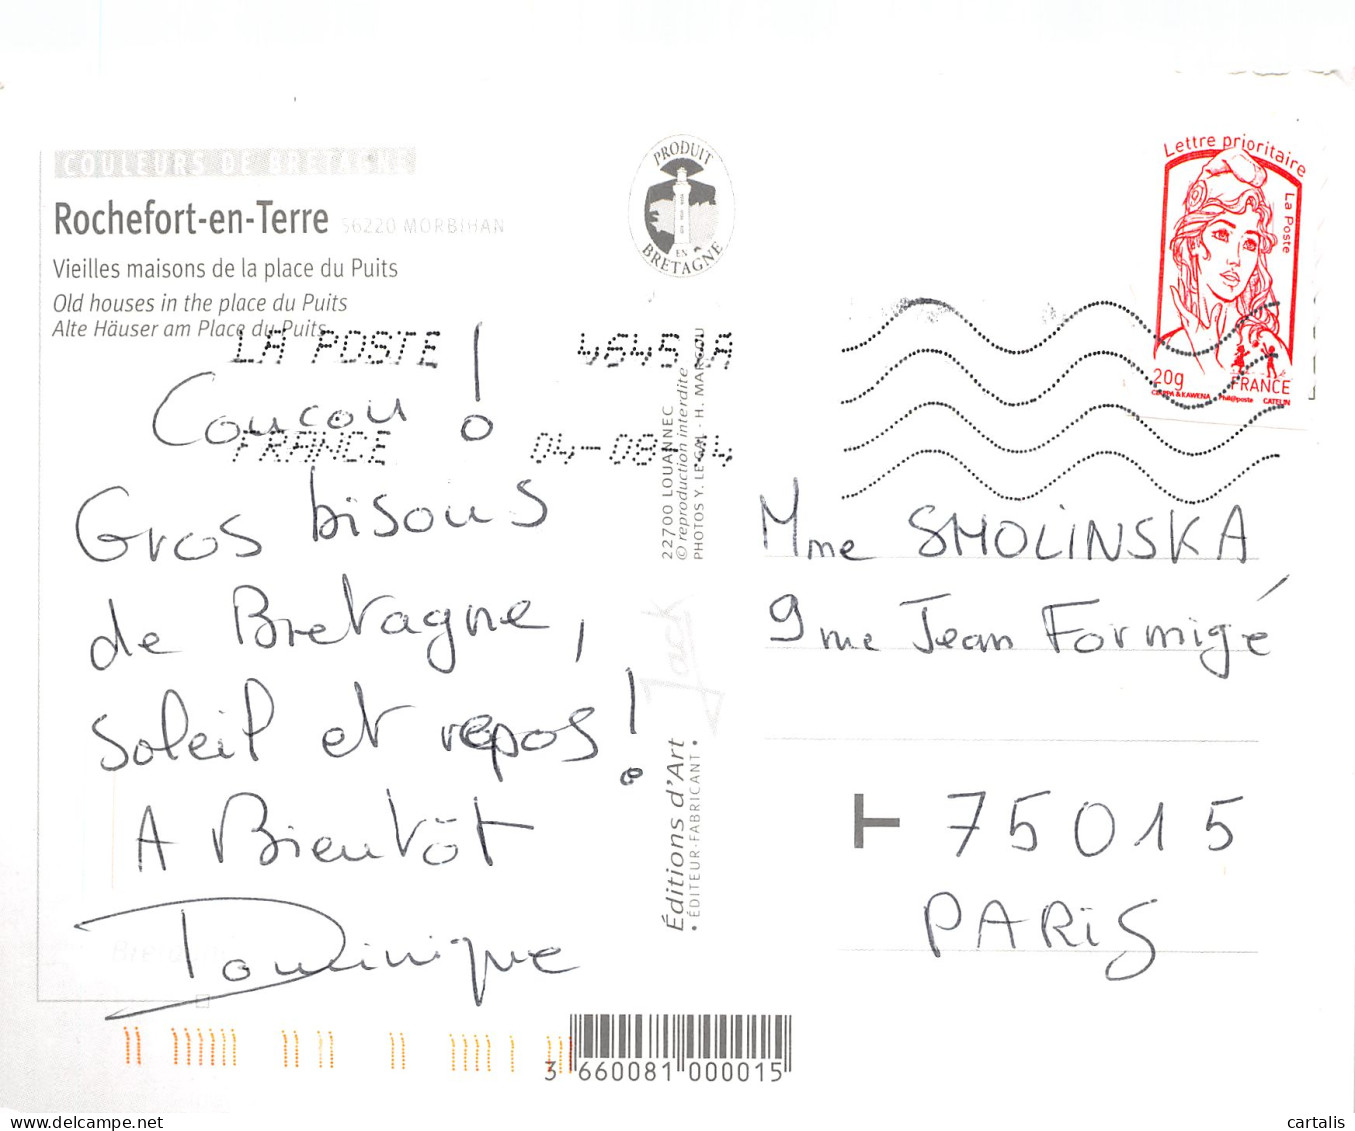 COULEURS DE BRETAGNE
Rochefort-en-Terre 56220 MORBIHAN
Vieilles maisons de la place du Puits
Old houses in the place du Puits
Alte Häuser am Place du Puits
PRODUIT
EN
BRETAGNE
Lettre prioritaire
La Poste
20g
FRANCE
CIAPPA & KAWENA Phil@poste CATELIN
LA POSTE 46457A
FRANCE 04-08-14
Coucou !
Gros bisous
de Bretagne,
soleil et repos !
A Bientôt
Dominique
22700 LOUANNEC
© reproduction interdite
PHOTOS Y. LE GAL - H. MARCOU
Jack
Éditions d'Art
• ÉDITEUR-FABRICANT •
Mme SMOLINSKA
9 rue Jean Formigé
T 75015
PARIS
Bretagne
3 660081 000015
© cartalis
www.delcampe.net